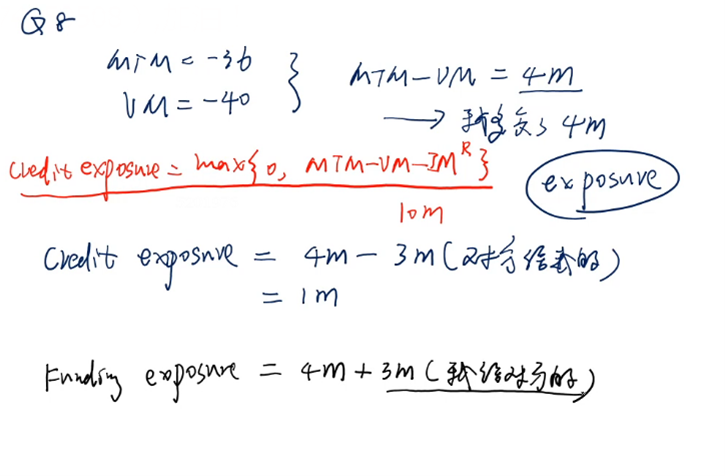 Q8
MTM = -36
VM = -40
MTM-VM = 4m
→ 我多交了 4m
Credit exposure = max{0, MTM-VM-IM^R}
10m
exposure
Credit exposure = 4m - 3m (对方给我的)
= 1m
Funding exposure = 4m + 3m (我给对方的)